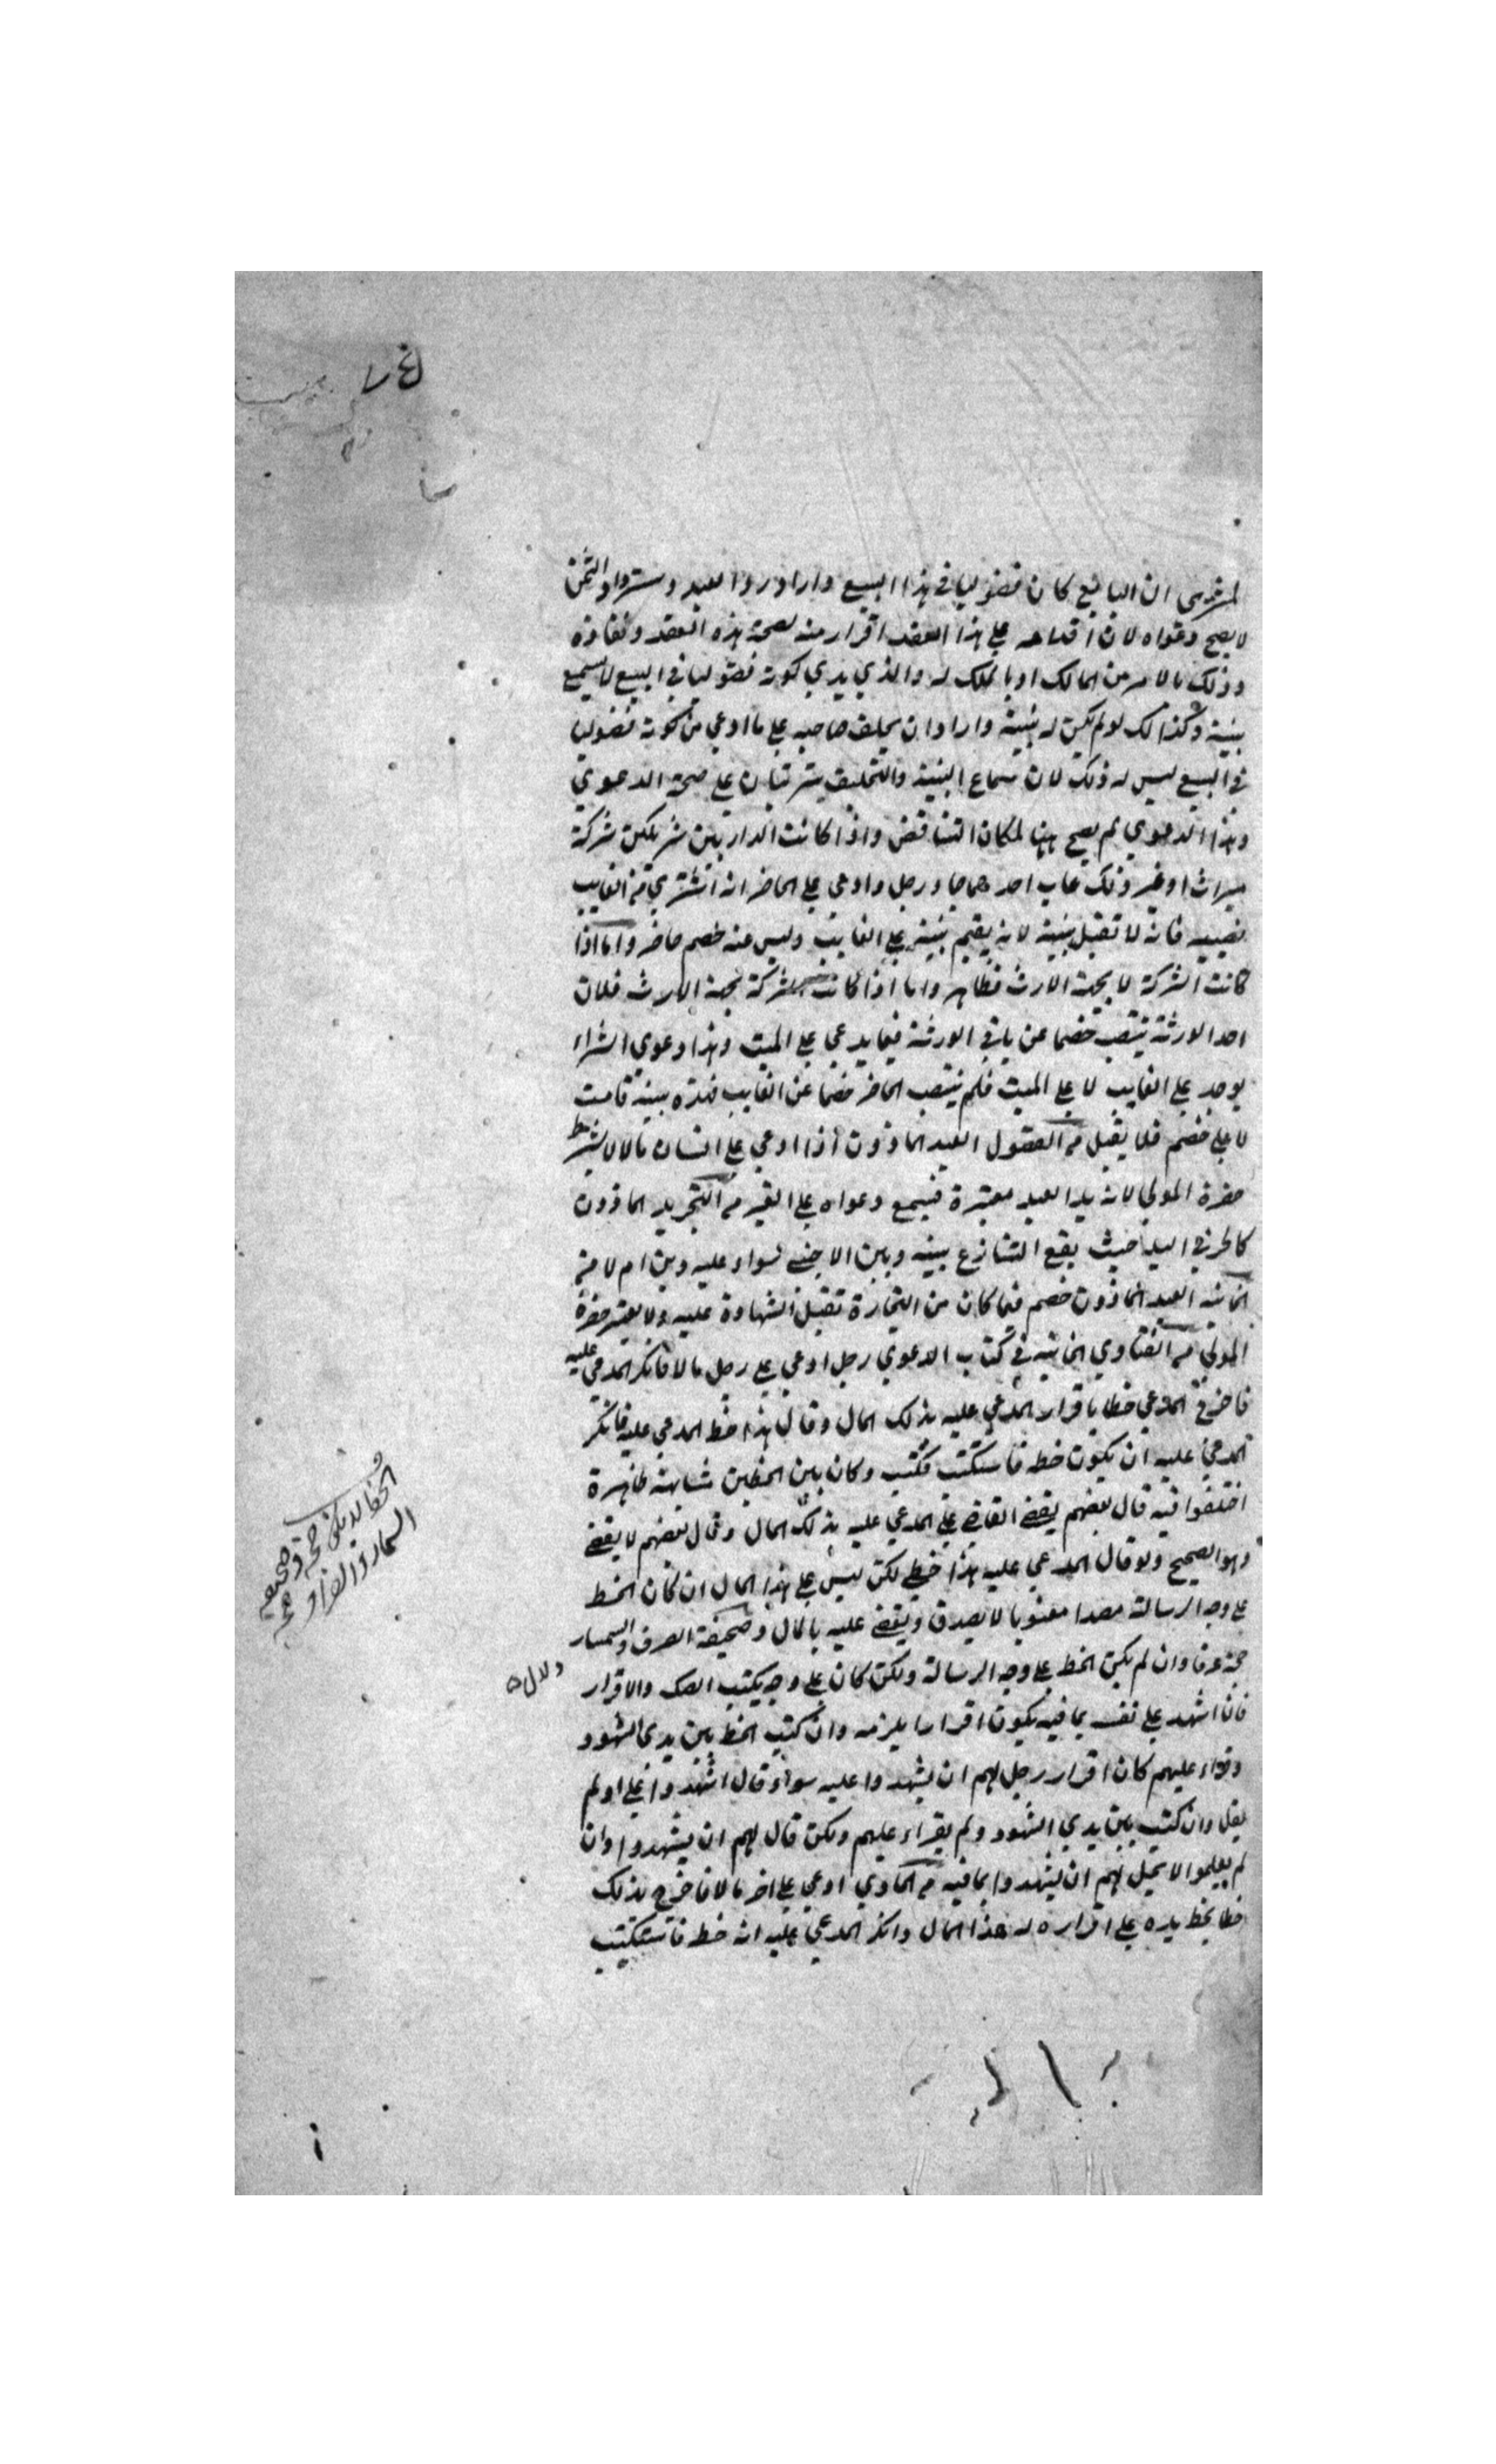 المشتري ان البائع كان فضوليا في هذا البيع واراد رد العبد واسترداد الثمن
لا يصح دعواه لان اقدامه على هذا العقد اقرار منه لصحة هذه العقد ونفاذه
وذلك بالامر من المالك او بالملك له والذي يدعي كونه فضوليا في البيع لا يسمع
بينة وكذلك لو لم يكن له بينة واراد ان يحلف صاحبه على ما ادعى من كونه فضوليا
في البيع ليس له ذلك لان سماع البينة والتحليف يترتبان على صحة الدعوي
وهذا الدعوي لم يصح ههنا لمكان التناقض واذا كانت الدار بين شريكين شركة
ميراث او غير ذلك غاب احدهما جاء رجل وادعى على الحاضر انه اشتري من الغايب
نصيبه فانه لا تقبل بينة لانه يقيم بينة على الغايب وليس عنه خصم حاضر واما اذا
كانت الشركة لا بجهة الارث فظاهر واما اذا كانت الشركة بجهة الارث فلان
احد الورثة ينتصب خصما عن باقي الورثة فيما يدعي على الميت وهذا دعوي الشراء
يوجد على الغايب لا على الميت فلم ينتصب الحاضر خصما عن الغايب فهذه بينة قامت
لا على خصم فلا يقبل من الفصول العبد الماذون اذا ادعي على انسان مالا لا يشترط
حضرة المولي لانه يد العبد معتبرة فيسمع دعواه على الغير من التجريد الماذون
كالحر في اليد حيث يقع التنازع بينه وبين الاجنبي سواء عليه دين ام لا من
الخانيه العبد الماذون خصم فيما كان من التجارة تقبل الشهادة عليه ولا يعتبر حضرة
المولي من الفتاوي الخانيه في كتاب الدعوي رجل ادعي على رجل مالا فانكر المدعي عليه
فاخرج المدعي خطا باقرار المدعي عليه بذلك المال وقال هذا خط المدعي عليه فانكر
المدعي عليه ان يكون خطه فاستكتب فكتب وكان بين الخطين مشابهة ظاهرة
اختلفوا فيه قال بعضهم يقضي القاضي على المدعي عليه بذلك المال وقال بعضهم لا يقضي
وهو الصحيح ولو قال المدعي عليه هذا خطي لكن ليس على هذا المال ان كان الخط
على وجه الرسالة مصدا معنونا لا يصدق ويقضي عليه بالمال وصحيفة الصرف والسمسار
حجة عرفا وان لم يكن الخط على وجه الرسالة ولكن كان على وجه يكتب الصك والاقرار
فان اشهد على نفسه بما فيه يكون اقرارا يلزمه وان كتب الخط بين يدي الشهود
وقراء عليهم كان اقرار رجل لهم ان يشهدوا عليه سواء قال اشهدوا علي او لم
يقل وان كتب بين يدي الشهود ولم يقراء عليهم ولكن قال لهم ان يشهدوا وان
لم يعلموا لا يحل لهم ان يشهدوا بما فيه من الحاوي ادعي على اخر مالا فاخرج بذلك
خطا بخط يده على اقراره له هذا المال وانكر المدعي عليه انه خطه فاستكتب
دلال